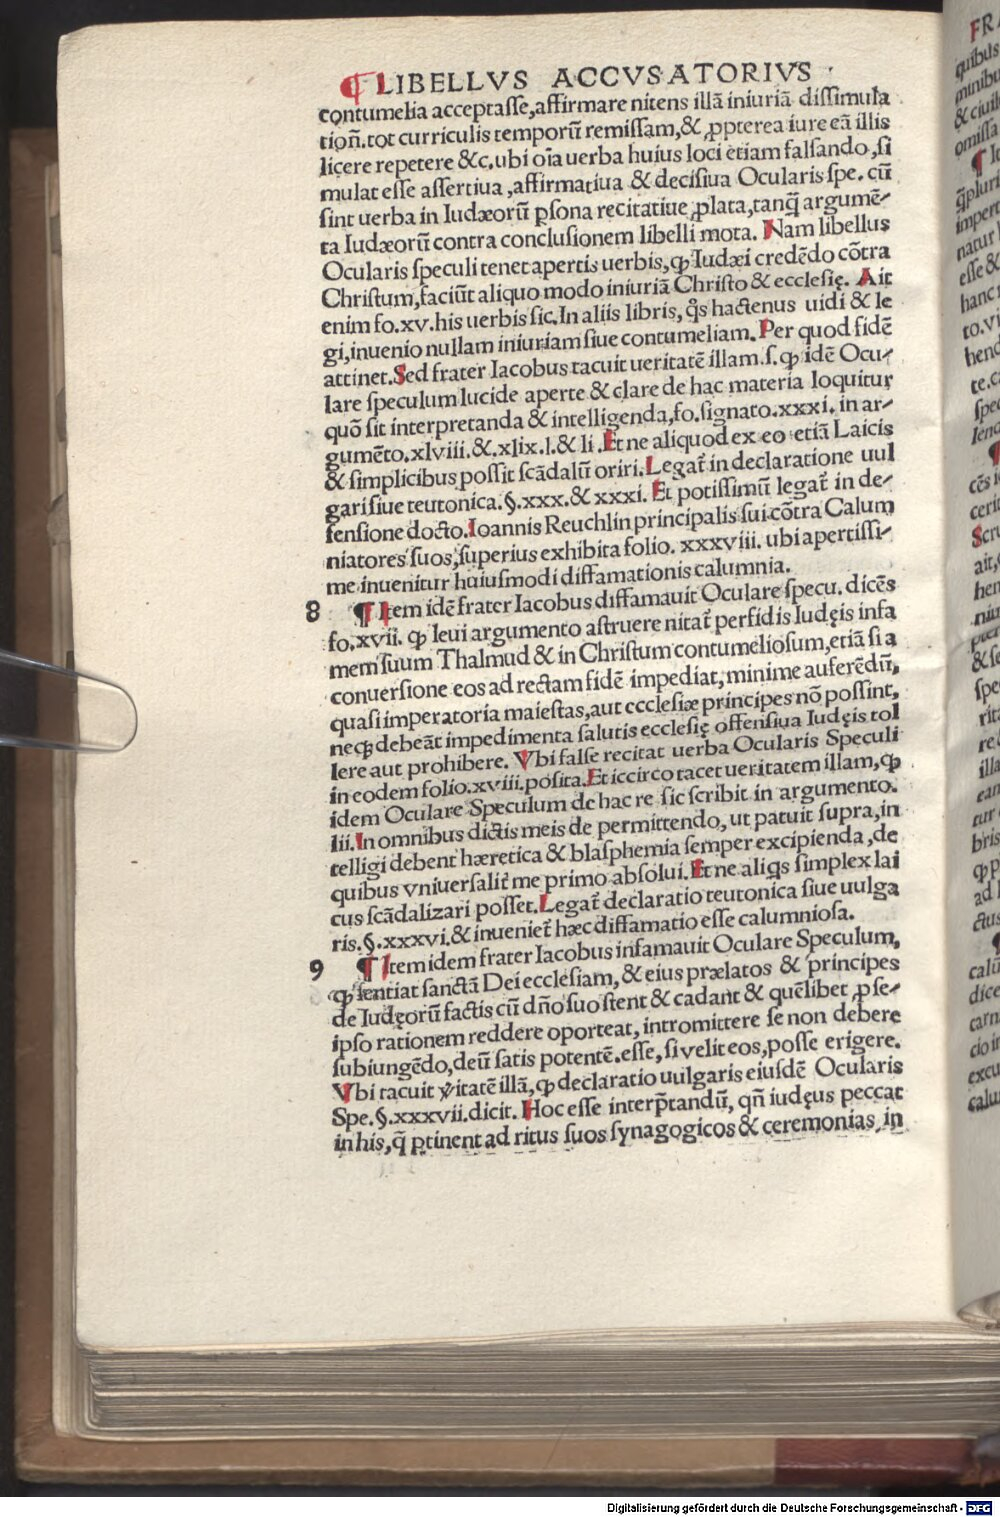 ¶ LIBELLVS ACCVSATORIVS
contumelia acceptasse,affirmare nitens illã iniuriã dissimula
tioñ.tot curriculis temporũ remissam,& ꝓpterea iure eã illis
licere repetere &c.ubi oĩa uerba huius loci etiam falsando,si
mulat esse assertiua,affirmatiua & decisiua Ocularis spe. cũ
sint uerba in Iudæorũ ꝑsona recitatiue ꝓlata,tanq̃ argumẽ-
ta Iudæorũ contra conclusionem libelli mota. Nam libellus
Ocularis speculi tenet apertis uerbis,ꝙ Iudæi credẽdo cõtra
Christum,faciũt aliquo modo iniuriã Christo & ecclesię. Ait
enim fo.xv.his uerbis sic.In aliis libris, q̃s hactenus uidi & le
gi,inuenio nullam iniuriam siue contumeliam.Per quod fidẽ
attinet.Sed frater Iacobus tacuit ueritatẽ illam.s.ꝙ idẽ Ocu-
lare speculum lucide aperte & clare de hac materia loquitur
quõ sit interpretanda & intelligenda,fo.signato.xxxi. in ar-
gumẽto.xlviii.&.xlix.l.& li.Et ne aliquod ex eo etiã Laicis
& simplicibus possit scãdalũ oriri.Legat᷑ in declaratione uul
gari siue teutonica.§.xxx.& xxxi. Et potissimũ legat᷑ in de-
fensione docto.Ioannis Reuchlin principalis sui cõtra Calum
niatores suos,superius exhibita folio. xxxviii. ubi apertissi-
me inuenitur huiusmodi diffamationis calumnia.
8 ¶ Item idẽ frater Iacobus diffamauit Oculare specu. dicẽs
fo.xvii. ꝙ leui argumento astruere nitat᷑ perfidis Iudęis infa
mem suum Thalmud & in Christum contumeliosum,etiã si a
conuersione eos ad rectam fidẽ impediat,minime auferẽdũ,
quasi imperatoria maiestas,aut ecclesiæ principes nõ possint,
neqꝫ debeãt impedimenta salutis ecclesię offensiua Iudęis tol
lere aut prohibere. Vbi false recitat uerba Ocularis Speculi
in eodem folio.xviii.posita.Et iccirco tacet ueritatem illam,ꝙ
idem Oculare Speculum de hac re sic scribit in argumento.
lii.In omnibus dictis meis de permittendo, ut patuit supra,in
telligi debent hæretica & blasphemia semper excipienda,de
quibus vniuersalit᷑ me primo absolui.Et ne aliq̃s simplex lai
cus scãdalizari posset.Legat᷑ declaratio teutonica siue uulga
ris.§.xxxvi.& inueniet᷑ hæc diffamatio esse calumniosa.
9 ¶ Item idem frater Iacobus infamauit Oculare Speculum,
ꝙ sentiat sanctã Dei ecclesiam, & eius prælatos & principes
de Iudęorũ factis cũ dño suo stent & cadant & quẽlibet ꝓ se-
ipso rationem reddere oporteat, intromittere se non debere
subiungẽdo,deũ satis potentẽ.esse,si velit eos,posse erigere.
Vbi tacuit v̾itatẽ illã,ꝙ declaratio uulgaris eiusdẽ Ocularis
Spe.§.xxxvii.dicit. Hoc esse interp̃tandũ, qñ iudęus peccat
in his,q̃ ꝑtinent ad ritus suos synagogicos & ceremonias, in
Digitalisierung gefördert durch die Deutsche Forschungsgemeinschaft - DFG